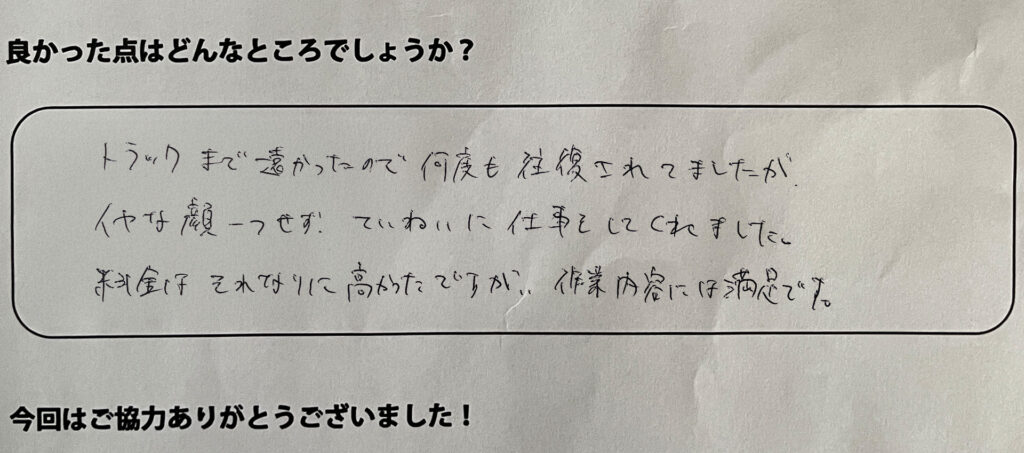 良かった点はどんなところでしょうか？
トラックまで遠かったので何度も往復されてましたが、
イヤな顔一つせず ていねいに仕事をしてくれました。
料金はそれなりに高かったですが、、作業内容には満足です。
今回はご協力ありがとうございました！